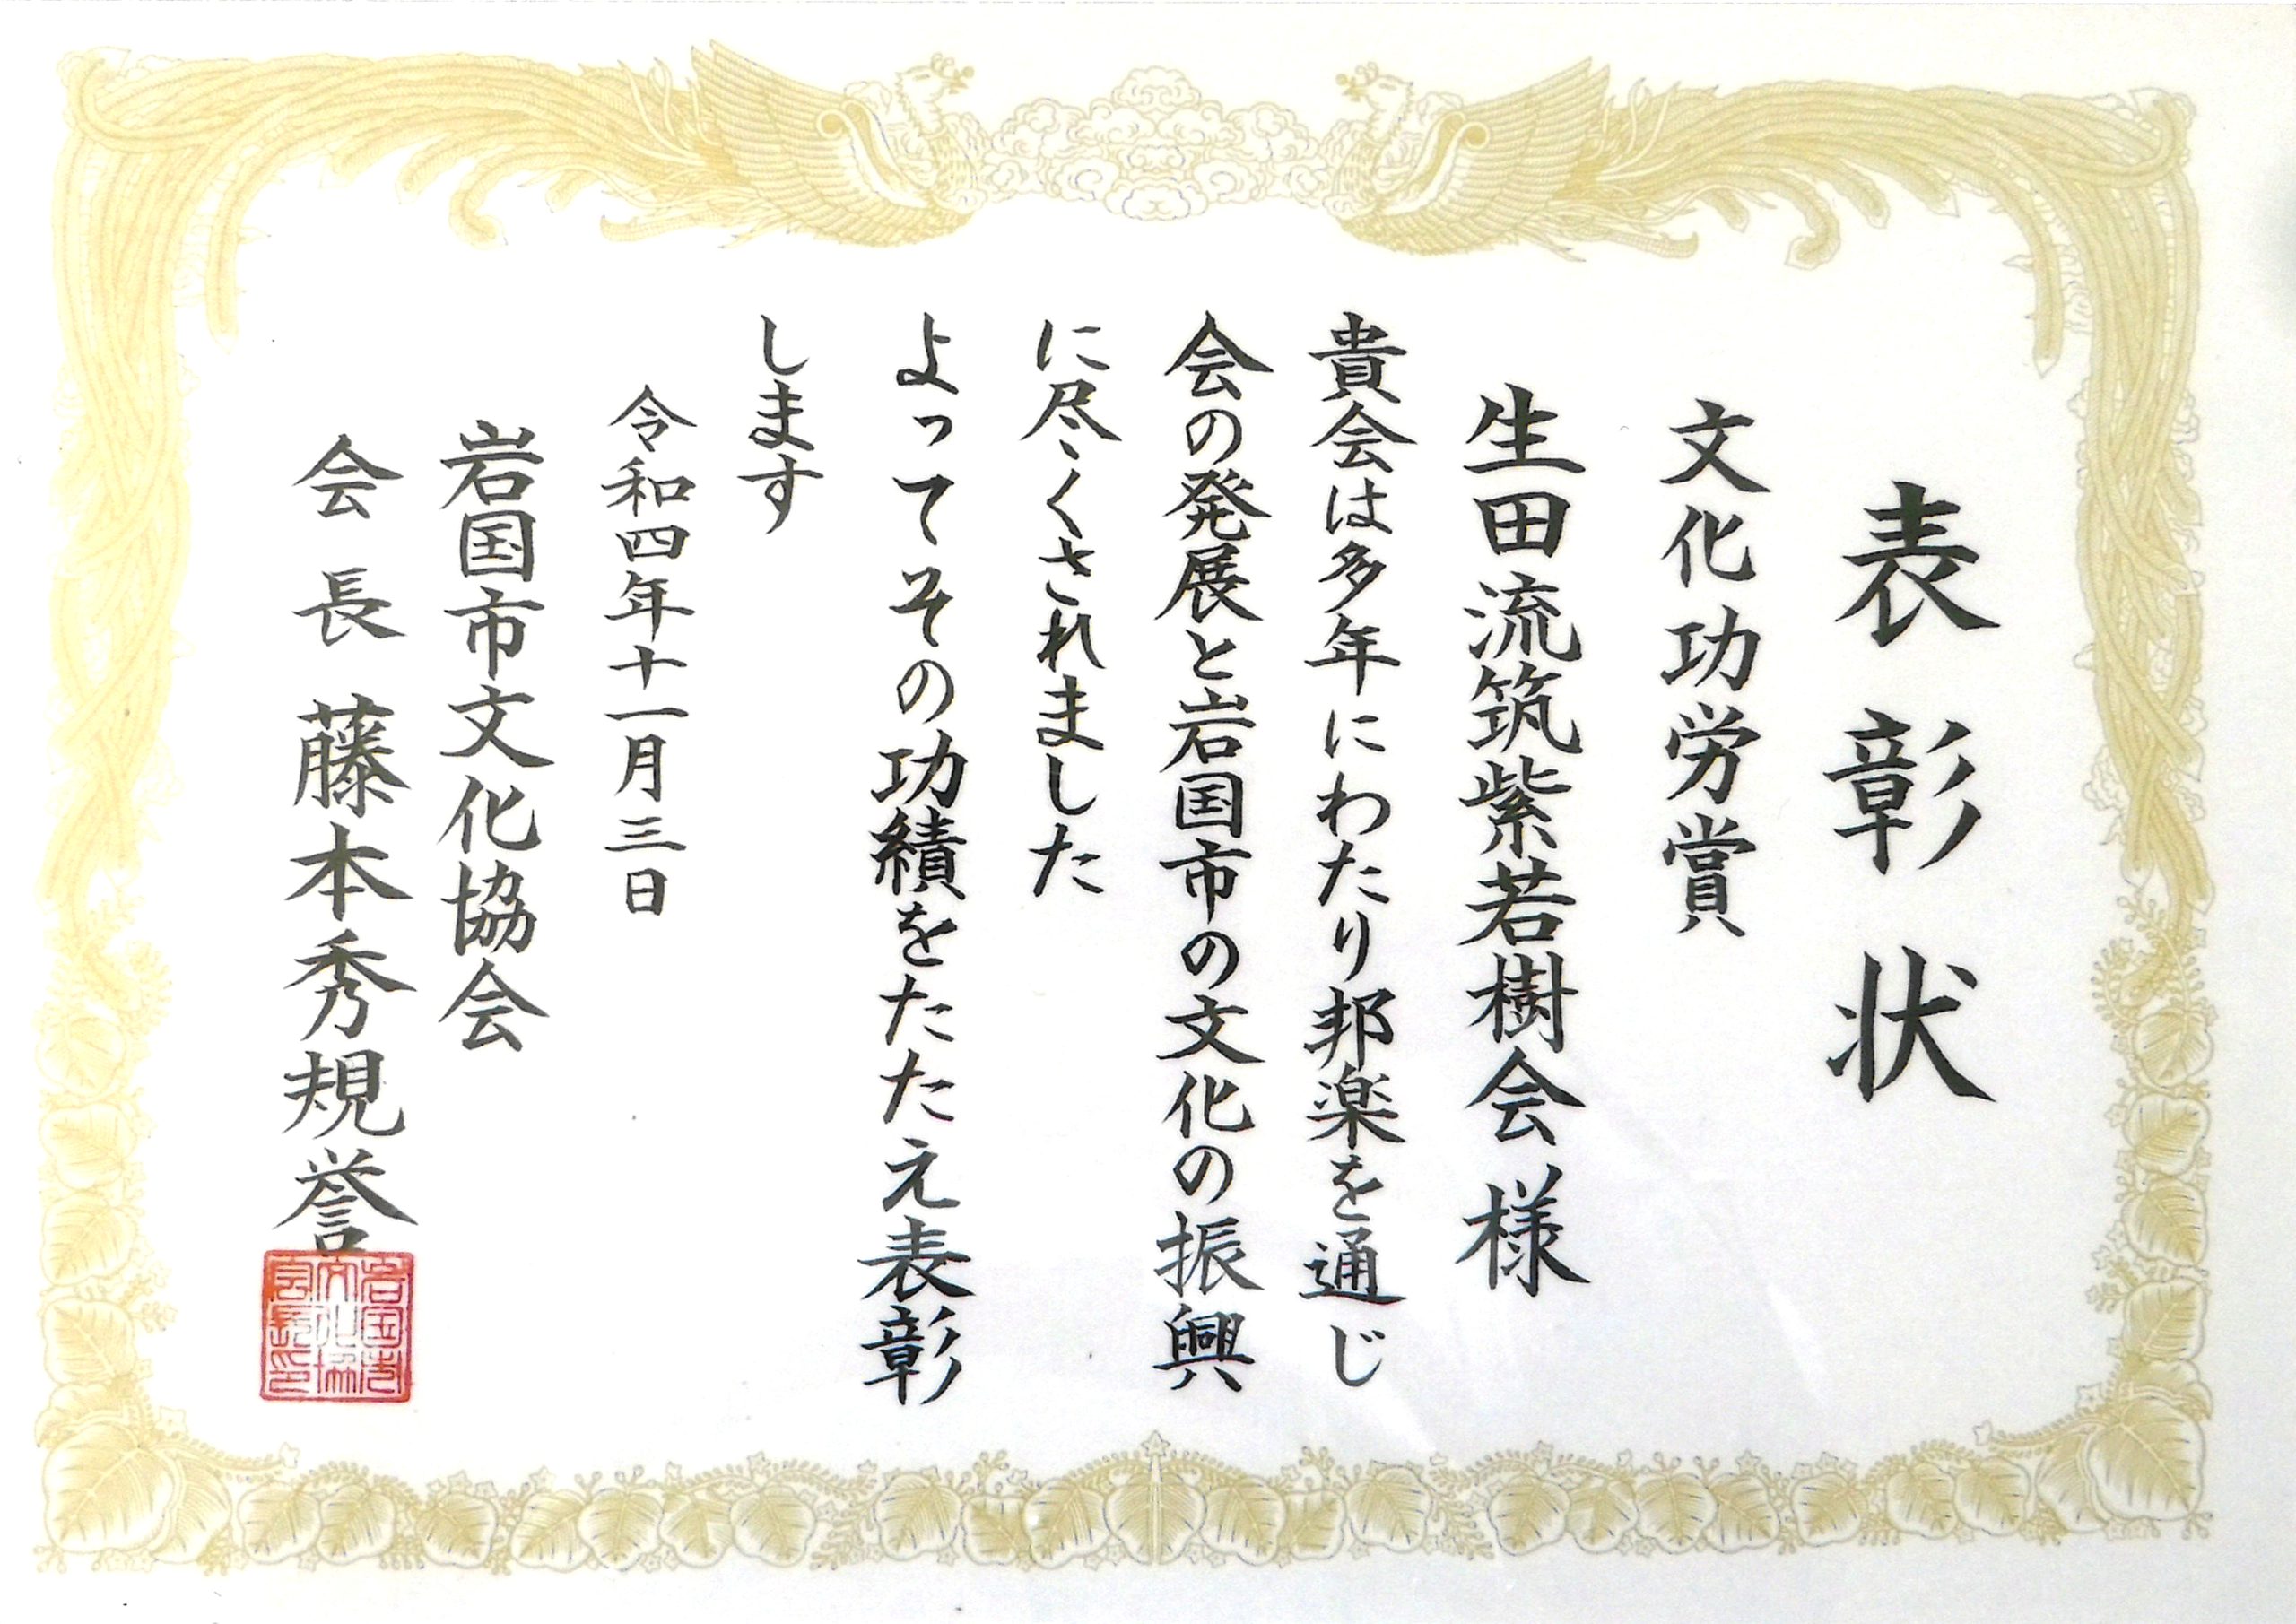 表彰状
文化功労賞
生田流筑紫若樹会様
貴会は多年にわたり邦楽を通じ
会の発展と岩国市の文化の振興
に尽くされました
よってその功績をたたえ表彰
します
令和四年十一月三日
岩国市文化協会
会長 藤本秀規誉
岩国市
文化協
会長印